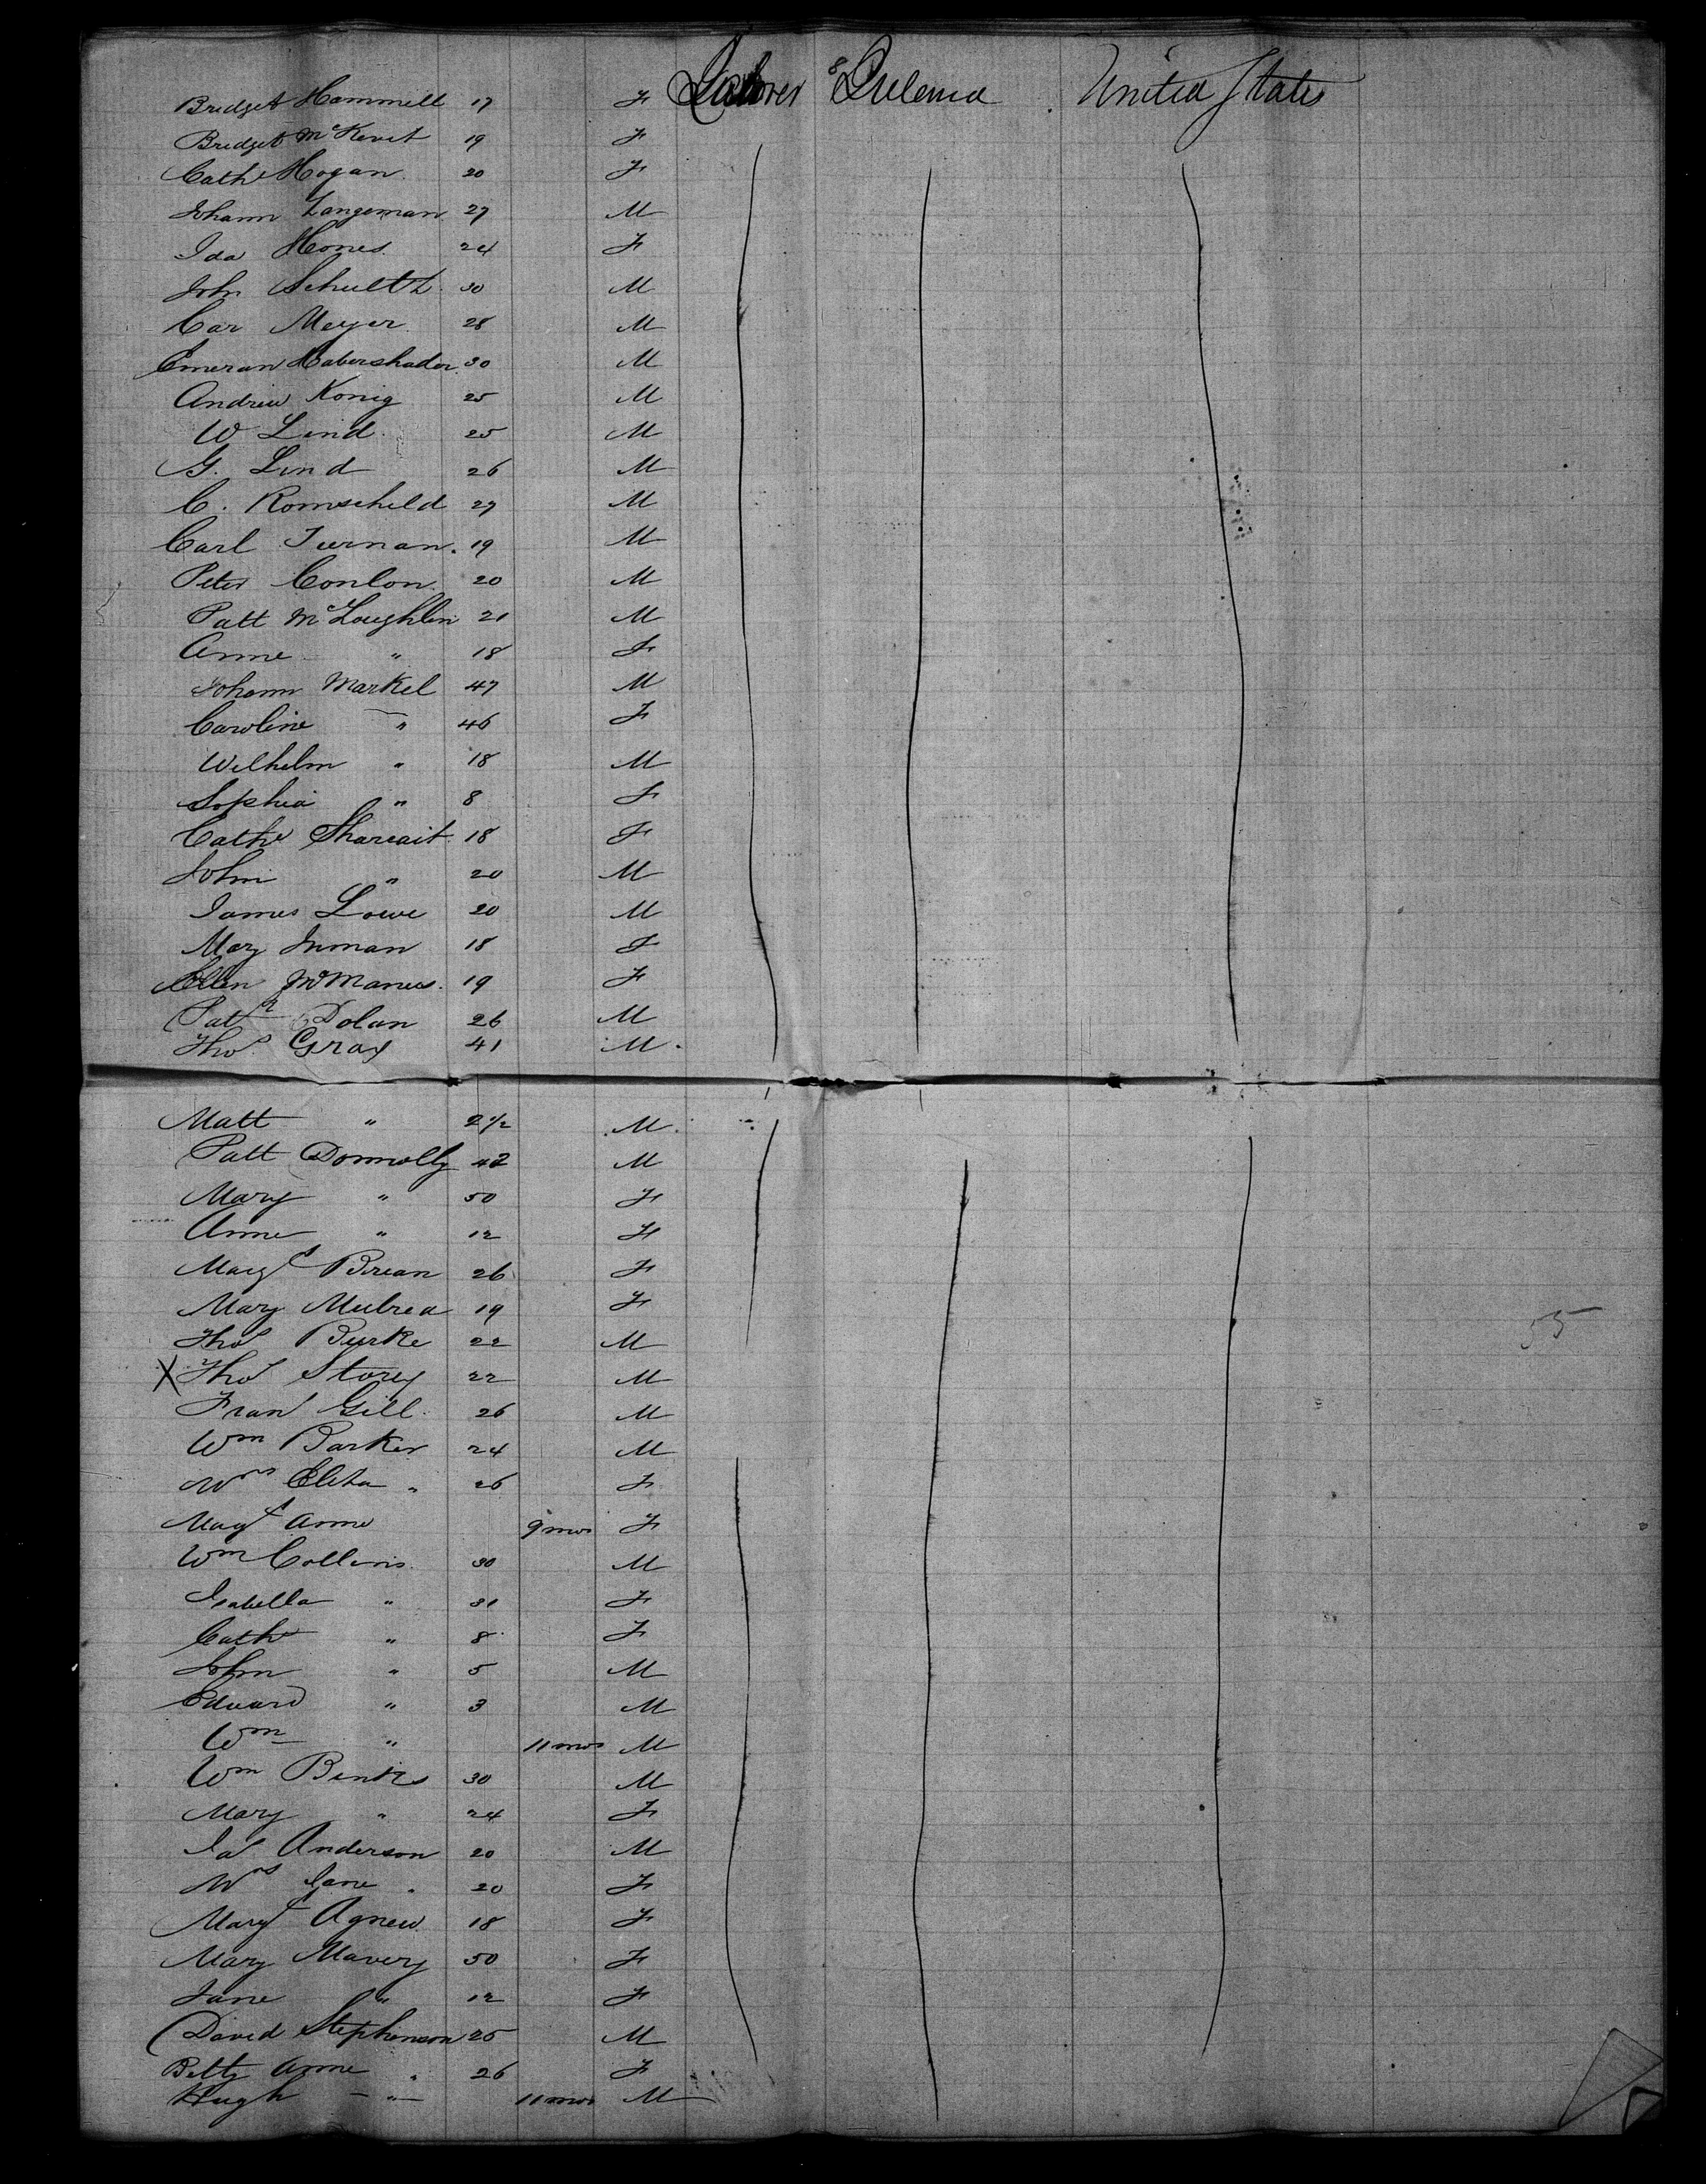 Bridget Hammill 17 F Laborer 8 Ireland United States
Bridget McKevit 19 F
Cathe Hogan. 20 F
Johann Langeman 27 M
Ida Hones. 24 F
John Schultz. 30 M
Car Meyer. 28 M
Emeran Habershader. 30 M
Andrew Konig 25 M
W Lind. 25 M
G. Lind 26 M
C. Romscheld 27 M
Carl Turnan. 19 M
Peter Conlon. 20 M
Patt McLoughlin 21 M
Anne " 18 F
Johann Markel 47 M
Caroline " 46 F
Wilhelm " 18 M
Sophia " 8 F
Cathe Shareait. 18 F
John " 20 M
James Lowe 20 M
Mary Inman 18 F
Ellen McManus. 19 F
Patk Dolan 26 M
Thos. Gray 41 M.
Matt " 2 1/2 M.
Patt Donnolly 42 M
Mary " 50 F
Anne " 12 F
Margt Brean 26 F
Mary Mulrea 19 F
Thos Burke 22 M
X Thos Storey 22 M
Fran Gill. 26 M
Wm Barker 24 M
Mrs Eliza " 26 F
Magt Anne 9 mos F
Wm Collins. 30 M
Isabella " 31 F
Cathe " 8 F
John " 5 M
Edward " 3 M
Wm " 11 mos M
Wm Binks 30 M
Mary " 24 F
Jas Anderson 20 M
Mrs Jane " 20 F
Margt Agnew. 18 F
Mary Mavery 50 F
Jane " 12 F
David Stephenson 25 M
Betty Anne " 26 F
Hugh " 11 mos M
55